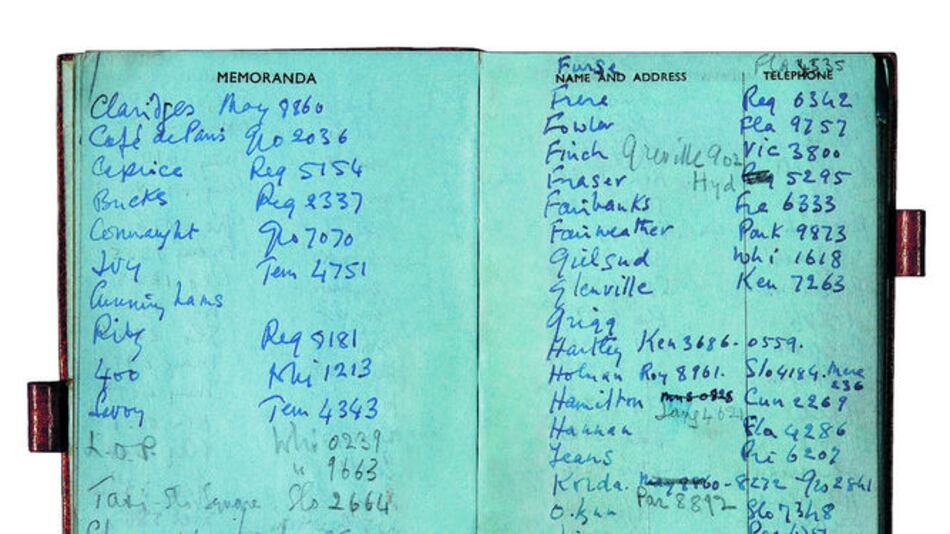 MEMORANDA
Claridges May 8860
Café de Paris Gro 2036
Caprice Reg 5154
Bucks Reg 2337
Connaught Gro 7070
Ivy Tem 4751
Cunninghams
Ritz Reg 8181
400 Whi 1213
Savoy Tem 4343
L.O.P. Whi 0239
" 9663
Taxi Slo Square Slo 2664
NAME AND ADDRESS TELEPHONE
Furse Fla 4335
Frere Reg 6342
Fowler Fla 9757
Finch Greville 902 Vic 3800
Fraser Hyd 5295
Fairbanks Fre 6333
Fairweather Park 9873
Guilgud Whi 1618
Glenville Ken 7263
Grigg
Hartley Ken 3686-0559.
Holman Roy 8961. Slo 4184.
236
Hamilton Cun 2269
Hannan Fla 4286
Jeans Pri 6207
Korda. May 8860-8272 Gro 2841
Par 8892
Slo 7348